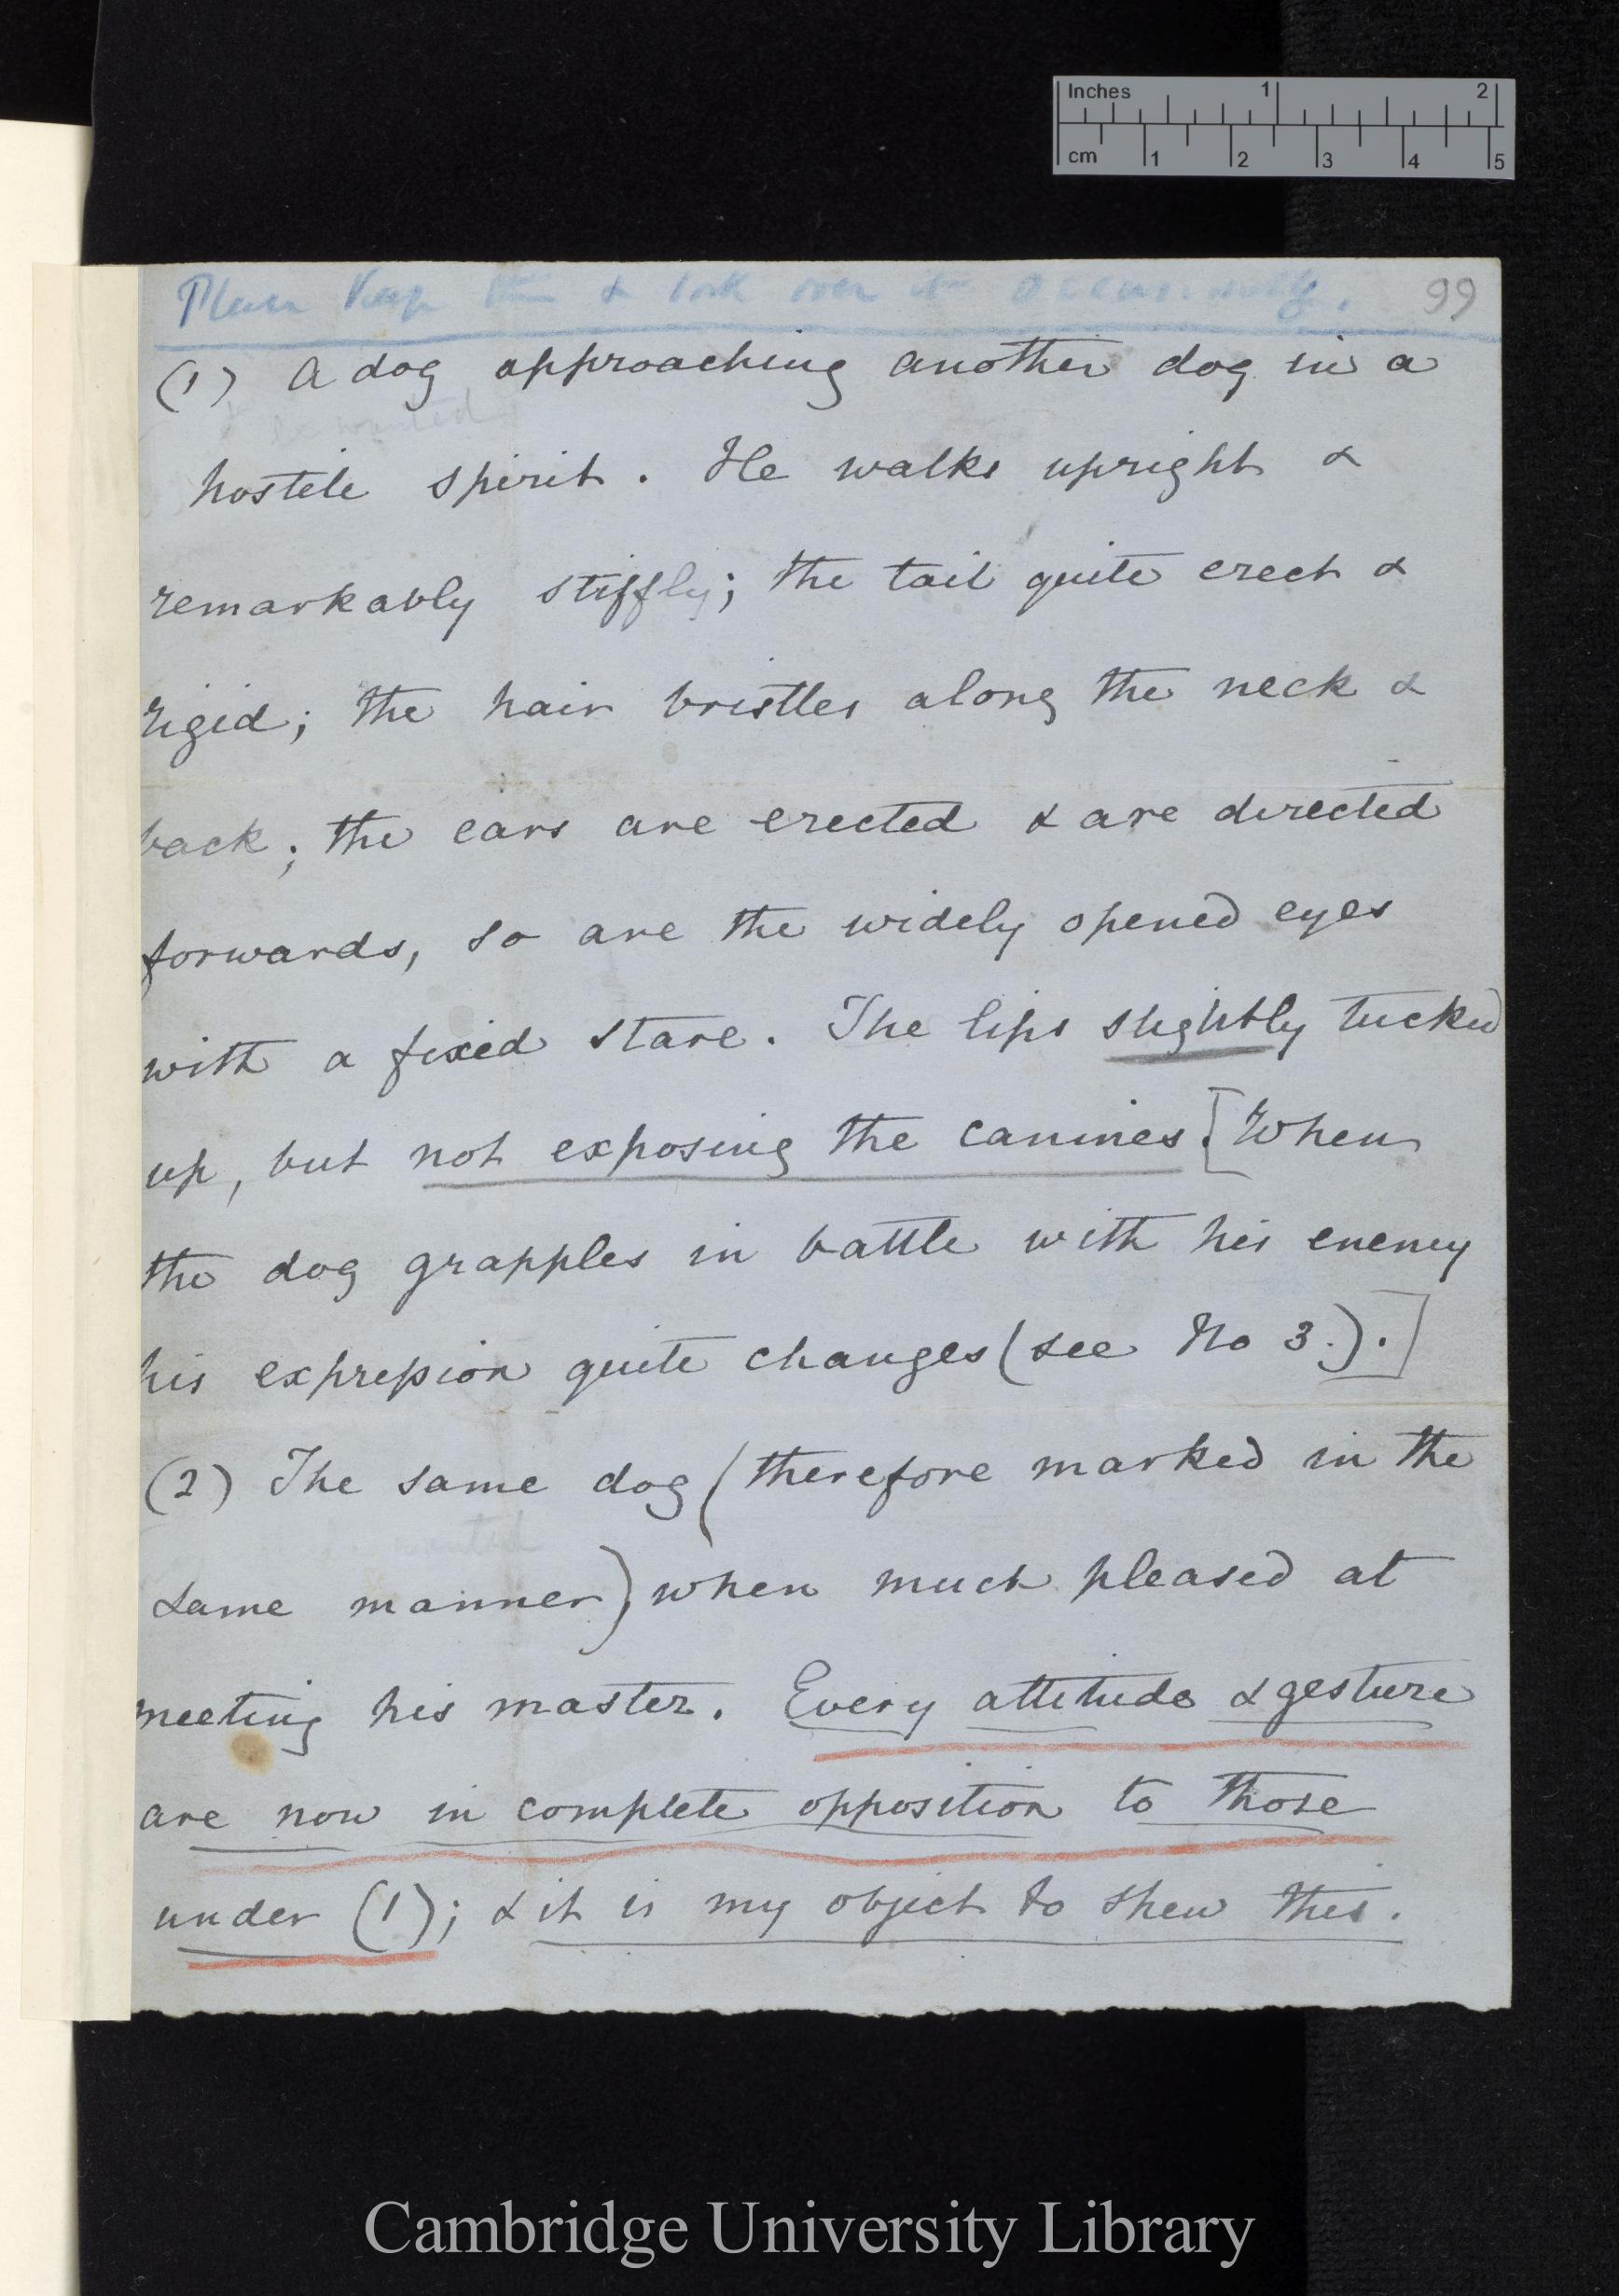 Inches 1 2
cm 1 2 3 4 5
Please keep this & look over it occasionally. 99
(1) A dog approaching another dog in a
be wanted
hostile spirit. He walks upright &
remarkably stiffly; the tail quite erect &
rigid; the hair bristles along the neck &
back; the ears are erected & are directed
forwards, so are the widely opened eyes
with a fixed stare. The lips slightly tucked
up, but not exposing the canines. [When
the dog grapples in battle with his enemy
his expression quite changes (see No 3.).]
(2) The same dog (therefore marked in the
wanted
same manner) when much pleased at
meeting his master. Every attitude & gesture
are now in complete opposition to those
under (1); & it is my object to shew this.
Cambridge University Library